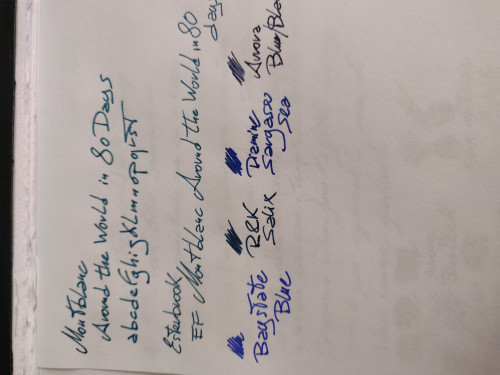 Montblanc
Around the World in 80 Days
abcdefghijklmnopqrst
Esterbrook
EF Montblanc Around the World in 80
days
Baystate
Blue
R&K
Salix
Diamine
Sargasso
Sea
Aurora
Blue/Bla